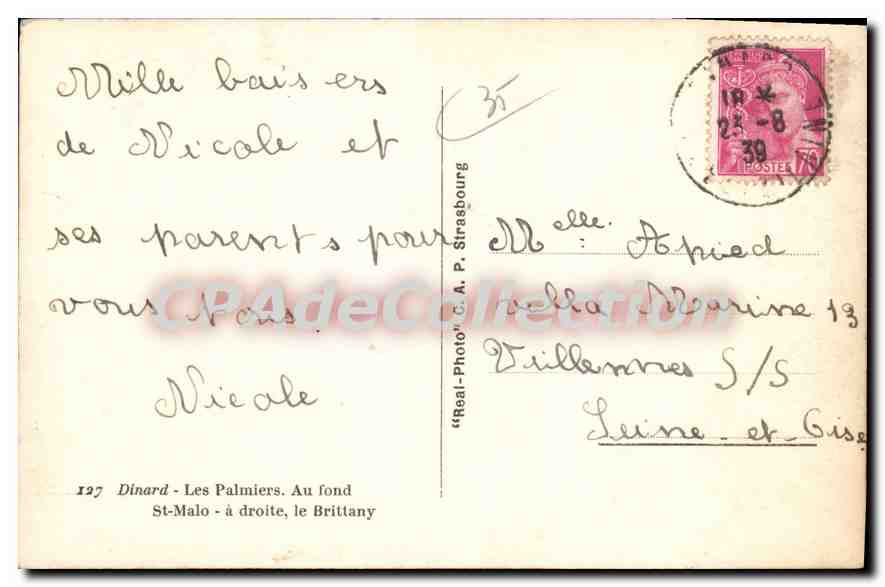 Mille baisers
de Nicole et
ses parents pour
vous tous.
Nicole
127 Dinard - Les Palmiers. Au fond
St-Malo - à droite, le Brittany
"Real-Photo" C. A. P. Strasbourg
35
18 *
23 -8
39
POSTES
70
Melle. Apied
villa Marine 13
Villennes S/S
Seine-et-Oise
CPAdeCollection